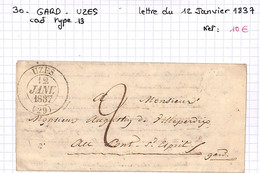 30 - GARD - UZES
cad type 13
lettre du 12 Janvier 1837
Net: 10€
UZES
12
JANV.
1837
(29)
2
A Monsieur
Monsieur Augustin de
Au Pont St Esprit
gard